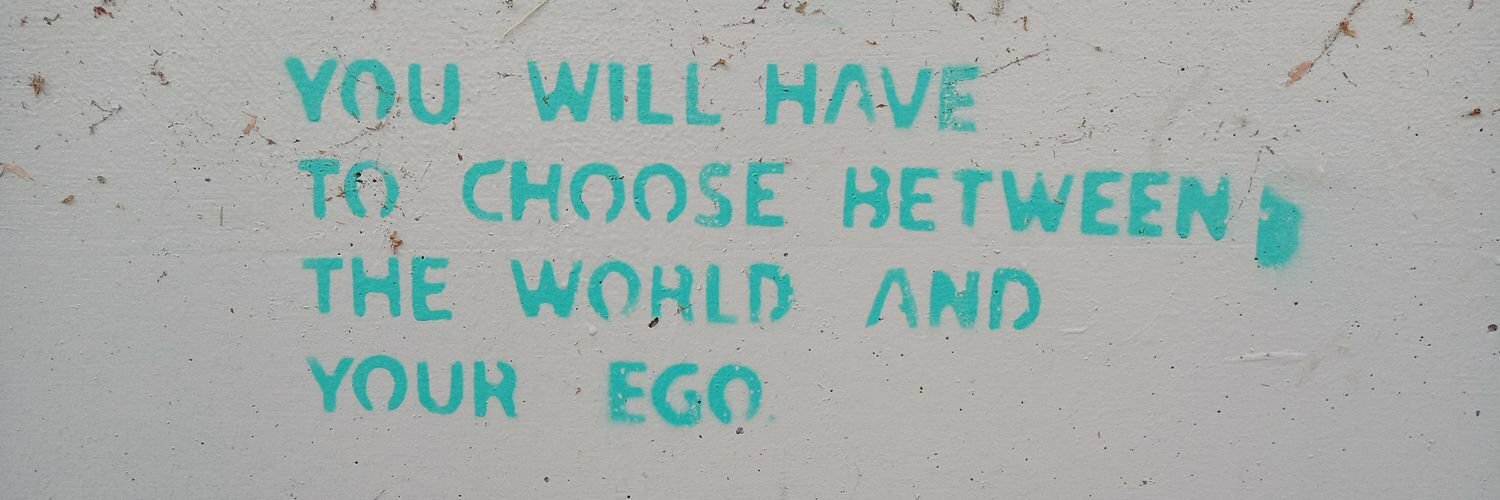 YOU WILL HAVE
TO CHOOSE BETWEEN
THE WORLD AND
YOUR EGO